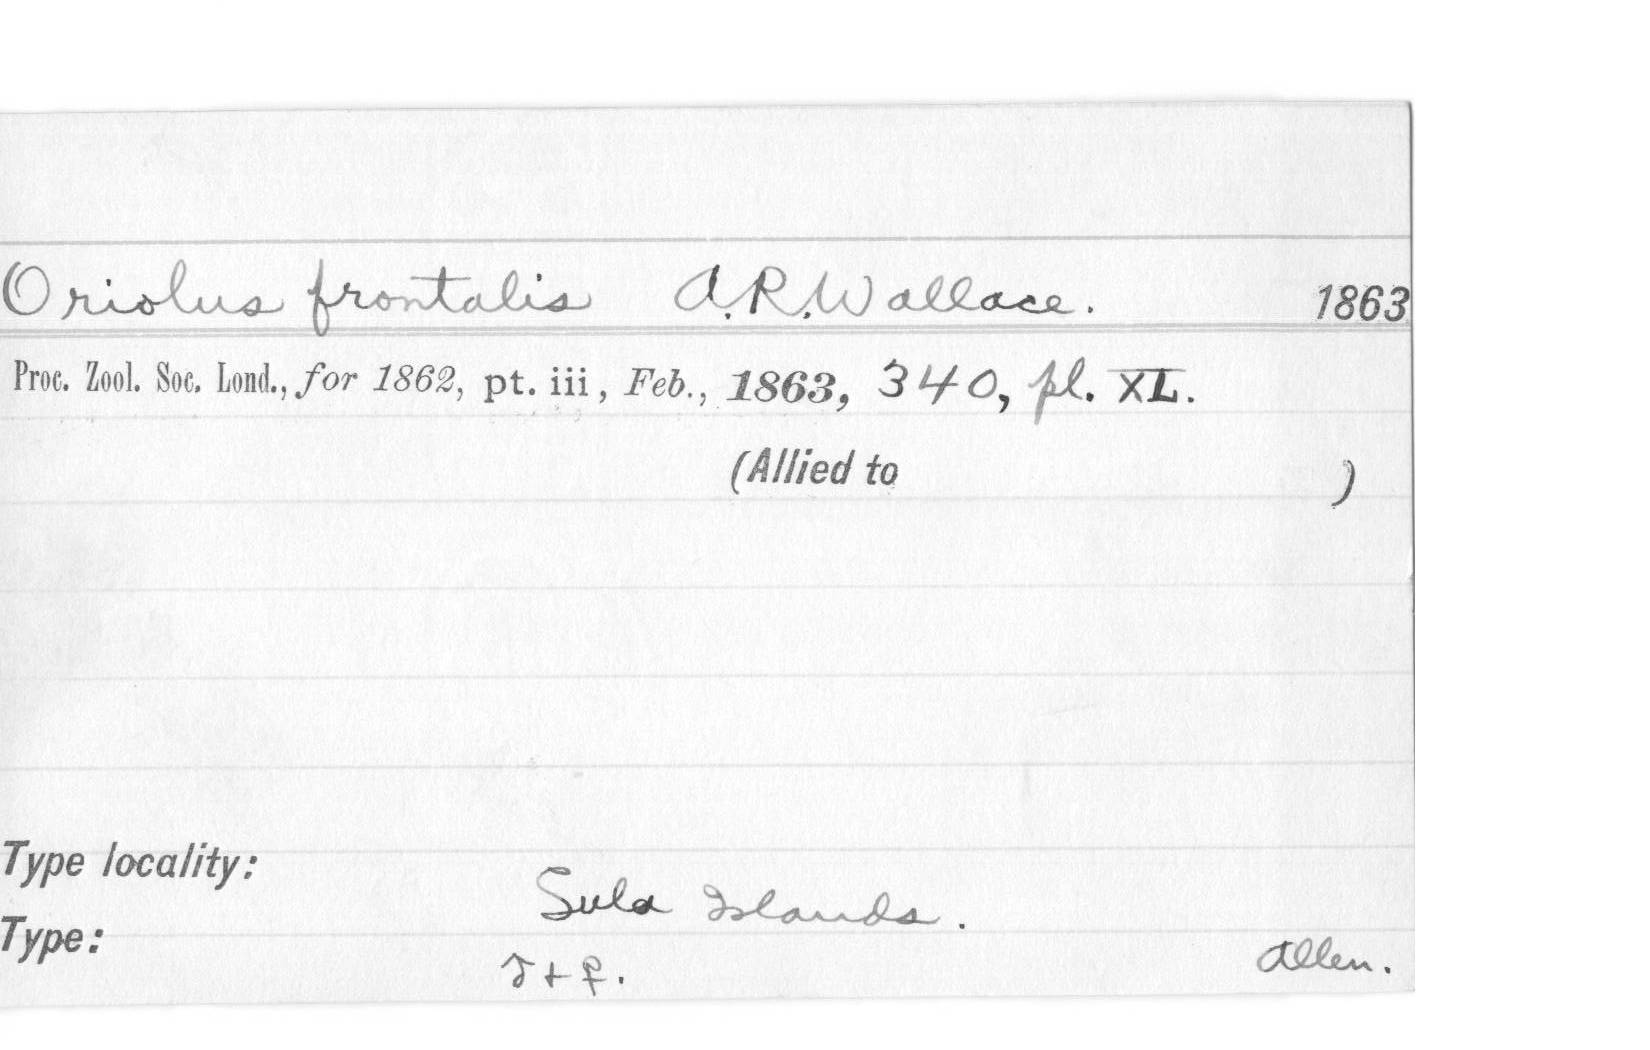 Oriolus frontalis A.R. Wallace. 1863
Proc. Zool. Soc. Lond., for 1862, pt. iii, Feb., 1863, 340, pl. XL.
(Allied to )
Type locality:
Sula Islands.
Type:
♂ + ♀.
Allen.